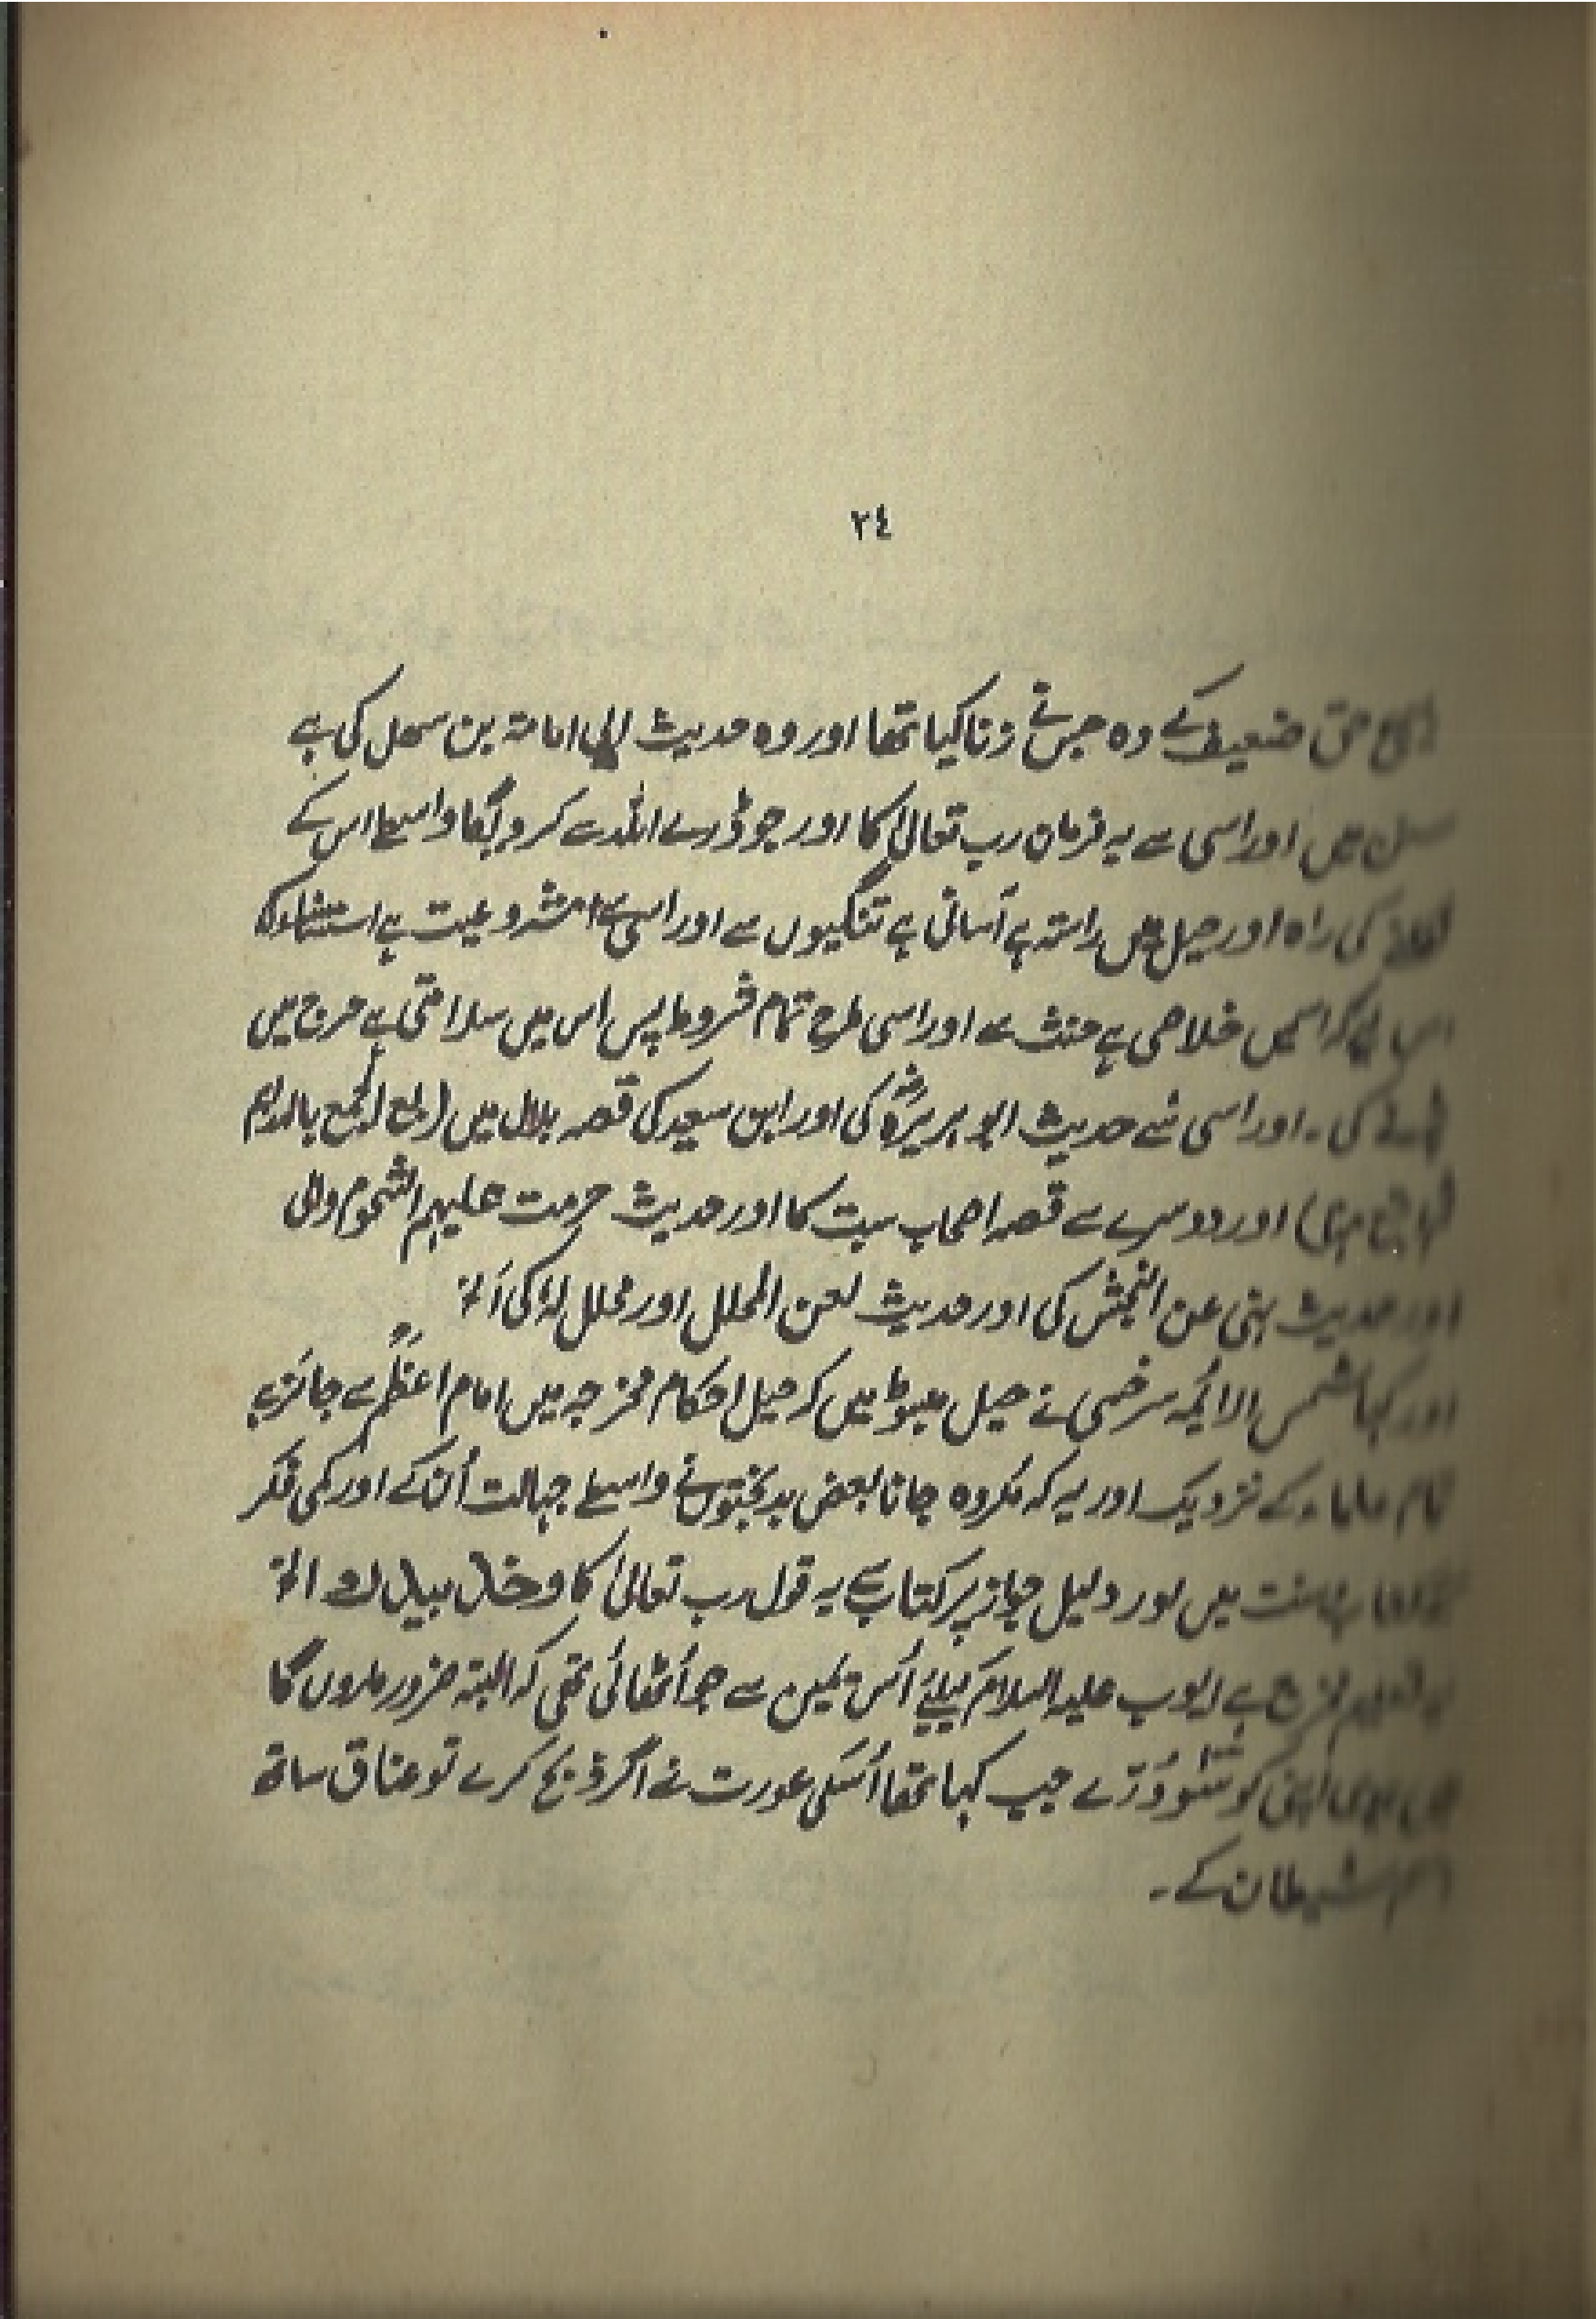 ٢٤
حق ضعیف کے وہ جس نے زنا کیا تھا اور وہ حدیث ابی امامۃ بن سھل کی ہے
میں اور اسی سے یہ فرمان رب تعالیٰ کا اور جو ڈرے اللہ سے کر دیگا واسطے اس کے
کی راہ اور حیل میں راستہ ہے آسانی ہے تنگیوں سے اور اسی سے مشروعیت ہے استثناء کا
اس لیے کہ اسمیں خلاصی ہے حنث سے اور اسی طرح تمام شروط پس اس میں سلامتی ہے حرج میں
کی۔ اور اسی سے حدیث ابو ہریرہؓ کی اور ابن سعید کی قصہ بلال میں (بع الجمع بالدراہم
اور دوسرے سے قصہ اصحاب سبت کا اور حدیث حرمت علیہم الشحوم والی
اور حدیث نہی عن النجش کی اور حدیث لعن المحلل اور محلل لہٗ کی الخ
اور کہا شمس الائمہ سرخسی نے حیل مبسوط میں کہ حیل احکام مخرجہ میں امام اعظم سے جائز ہے
تمام علماء کے نزدیک اور یہ کہ مکروہ جانا بعض بدبختوں نے واسطے جہالت اُن کے اور کمی فکر
سنت میں اور دلیل جواز پر کتاب سے یہ قول رب تعالیٰ کا وخذ بیدک الخ
یہ تعلیم مخرج ہے ایوب علیہ السلام کیلئے اُس یمین سے جو اُٹھائی تھی کہ البتہ ضرور ماروں گا
میں بیوی اپنی کو سَو دُرّے جب کہا تھا اُسکی عورت نے اگر ذبح کرے تو عناق ساتھ
اسم شیطان کے۔